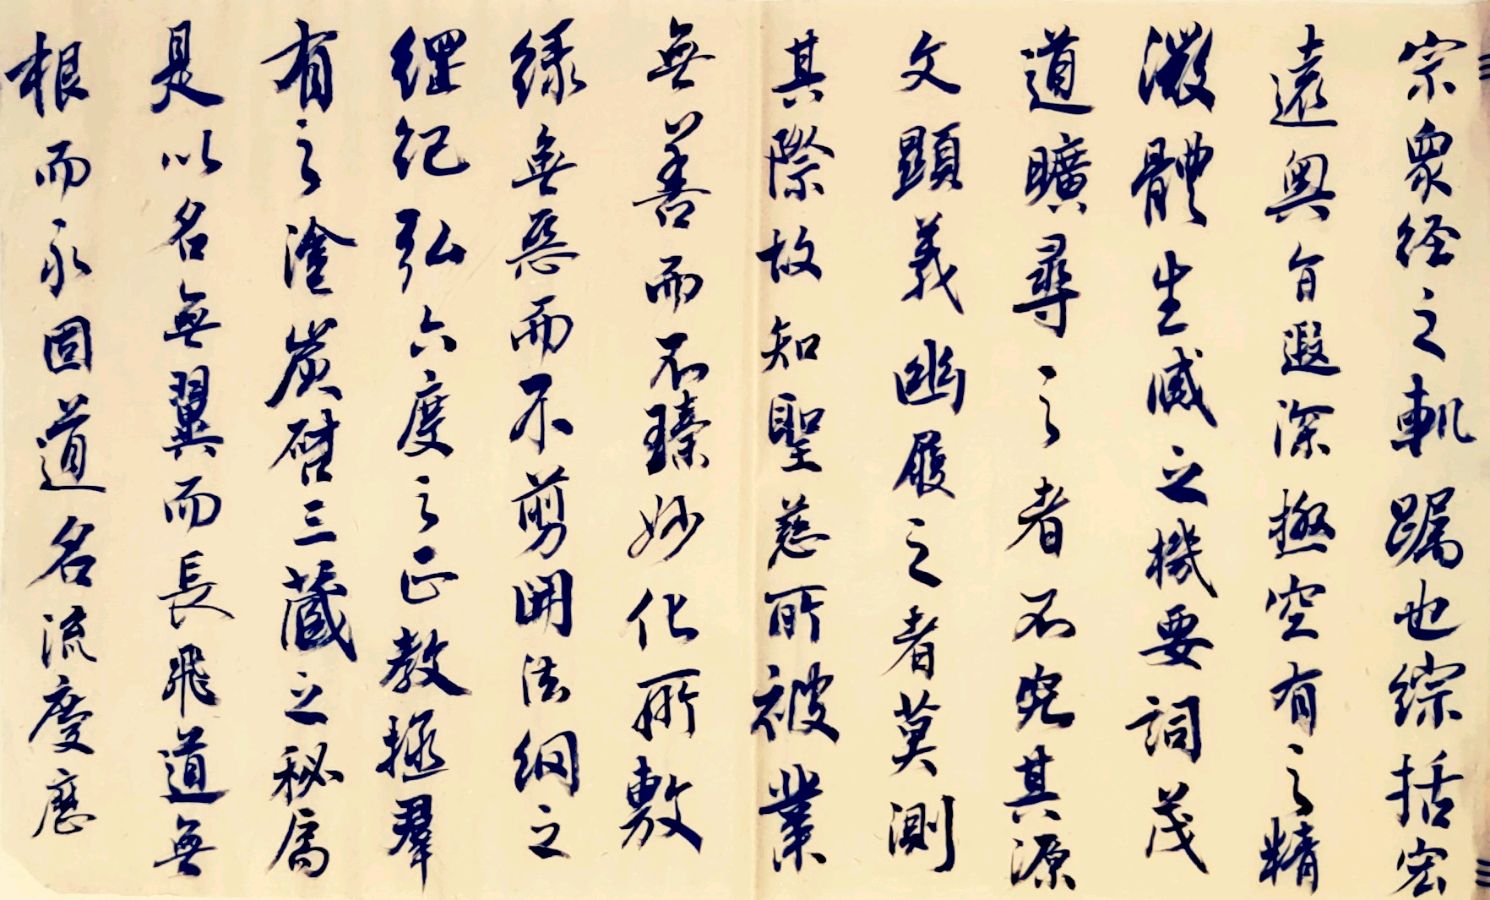 宗眾经之軏躅也綜括宏
遠奧旨遐深極空有之精
微體生滅之機要詞茂
道曠尋之者不究其源
文顯義幽履之者莫測
其際故知聖慈所被業
無善而不臻妙化所敷
緣無惡而不剪開法網之
綱紀弘六度之正教拯群
有之塗炭啓三藏之秘扃
是以名無翼而長飛道無
根而永固道名流慶歷